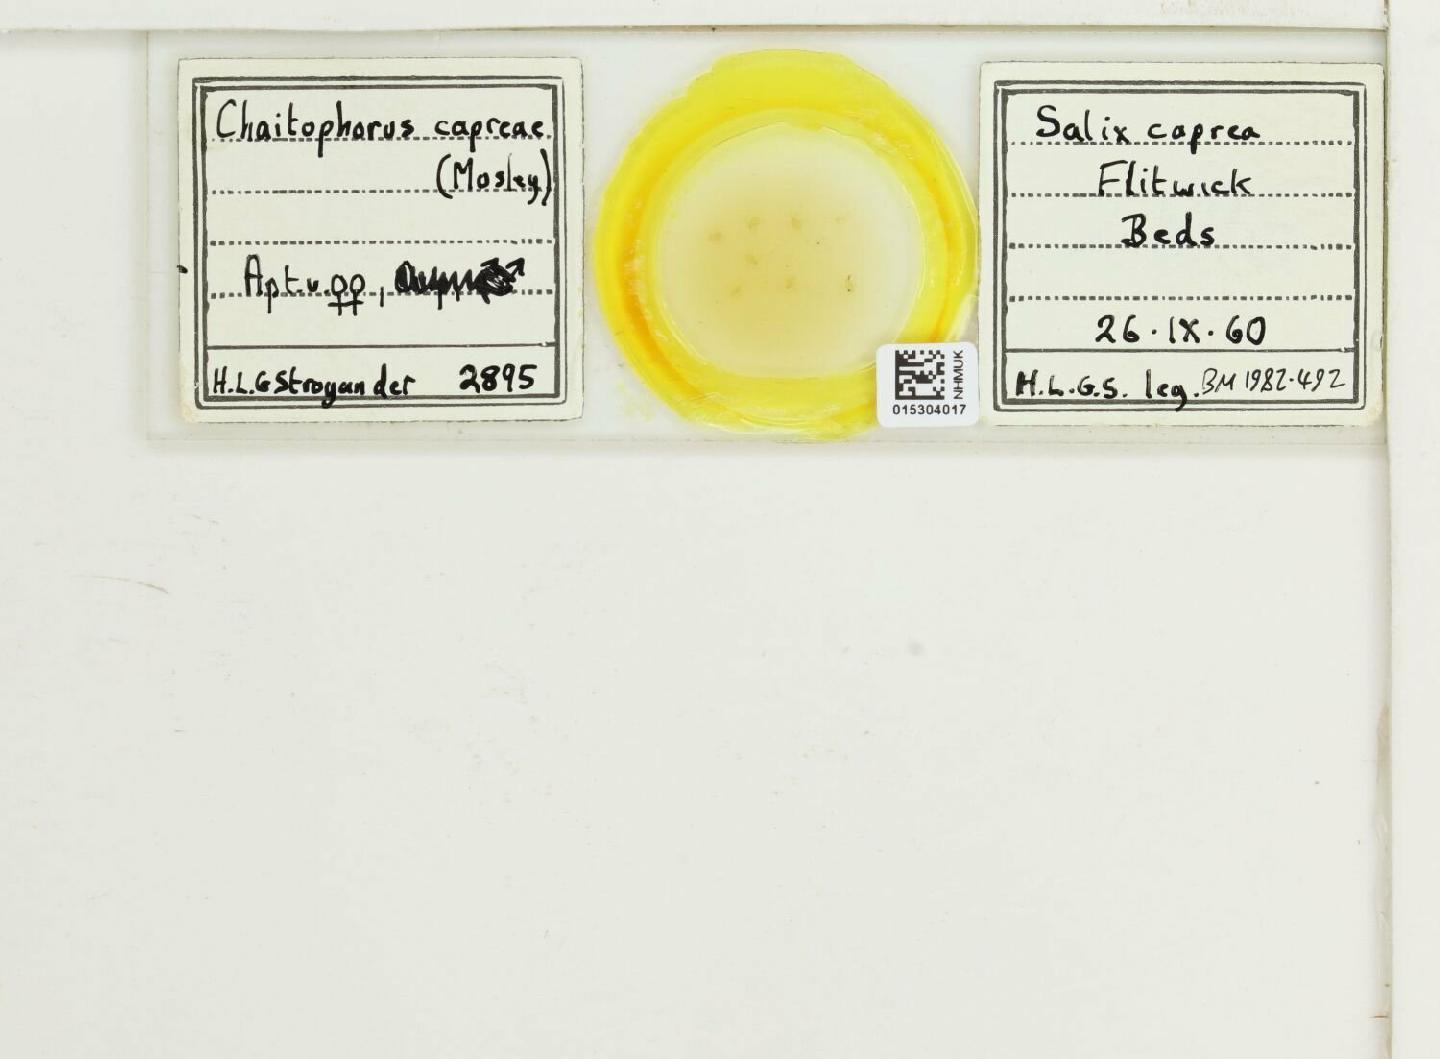 Chaitophorus capreae
(Mosley)
Apt.v.♀♀,
H.L.G Stroyan det 2895
NHMUK
015304017
Salix caprea
Flitwick
Beds
26.IX.60
H.L.G.S. leg. BM 1982-492